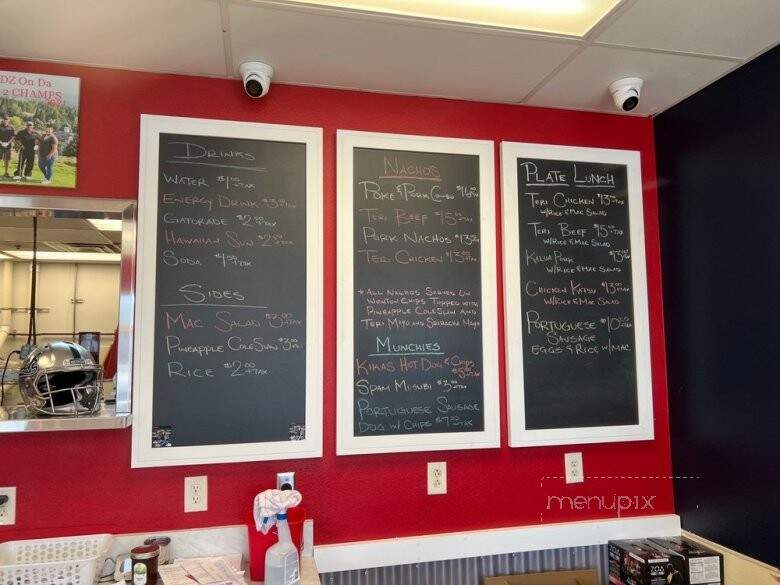 DZ On Da
2 CHAMPS
DRINKS
WATER $1.00 +TAX
ENERGY DRINK $3.00 +TAX
GATORADE $2.00 +TAX
HAWAIIAN SUN $2.00 +TAX
SODA $1.00 +TAX
SIDES
MAC SALAD $3.00 +TAX
PINEAPPLE COLESLAW $3.00 +TAX
RICE $2.00 +TAX
NACHOS
POKE & PORK COMBO $16.00 +TAX
TERI BEEF $15.00 +TAX
PORK NACHOS $13.00 +TAX
TERI CHICKEN $13.00 +TAX
* ALL NACHOS SERVED ON
WONTON CHIPS TOPPED WITH
PINEAPPLE COLESLAW AND
TERI MAYO AND SRIRACHA MAYO
MUNCHIES
KIKAS HOT DOG & CHIPS
$5.00 +TAX
SPAM MISUBI $3.00 +TAX
PORTUGUESE SAUSAGE
DOG W/ CHIPS $7.00 +TAX
PLATE LUNCH
TERI CHICKEN $13.00 +TAX
W/RICE & MAC SALAD
TERI BEEF $15.00 +TAX
W/RICE & MAC SALAD
KALUA PORK $13.00 +TAX
W/RICE & MAC SALAD
CHICKEN KATSU $13.00 +TAX
W/RICE & MAC SALAD
PORTUGUESE $10.00 +TAX
SAUSAGE
EGGS & RICE W/MAC
menupix